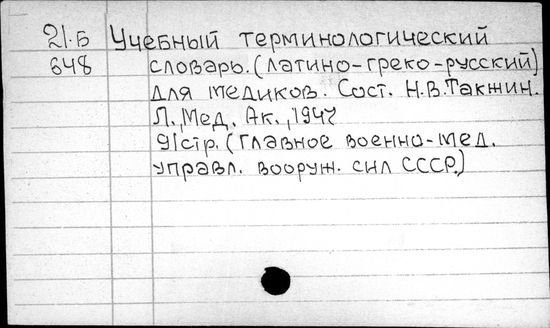 21.Б Учебный терминологический
648 словарь. (латино-греко-русский)
для медиков. Сост. Н.В.Такжин.
Л., Мед. Ак., 1947
91стр. (Главное военно-мед.
управл. вооруж. сил СССР.)